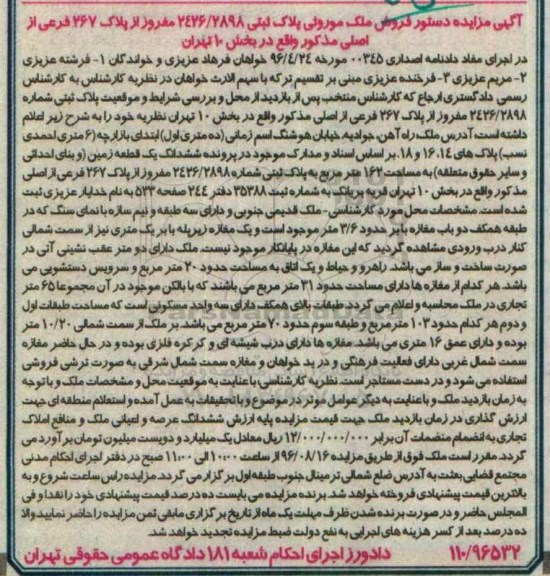 آگهی مزایده دستور فروش ملک موروثی پلاک ثبتی ۲۴۲۶/۲۸۹۸ مفروز از پلاک ۲۶۷ فرعی از
اصلی مذکور واقع در بخش ۱۰ تهران
در اجرای مفاد دادنامه اصداری ۰۰۳۴۵ مورخه ۹۶/۴/۲۴ خواهان فرهاد عزیزی و خواندگان ۱- فرشته عزیزی
۲- مریم عزیزی ۳- فرخنده عزیزی مبنی بر تقسیم ترکه با سهم الارث خواهان در نظریه کارشناس به کارشناس
رسمی دادگستری ارجاع که کارشناس منتخب پس از بازدید از محل و بررسی شرایط و موقعیت پلاک ثبتی شماره
۲۴۲۶/۲۸۹۸ مفروز از پلاک ۲۶۷ فرعی از اصلی مذکور واقع در بخش ۱۰ تهران نظریه خود را به شرح زیر اعلام
داشته است: آدرس ملک راه آهن، جوادیه، خیابان هوشنگ اسم زمانی (ده متری اول) ابتدای بازارچه (۶ متری احمدی
نسب) پلاک های ۱۶،۱۴ و ۱۸. بر اساس اسناد و مدارک موجود در پرونده ششدانگ یک قطعه زمین (و بنای احداثی
و سایر حقوق متعلقه) به مساحت ۱۶۲ متر مربع به پلاک ثبتی شماره ۲۴۲۶/۲۸۹۸ مفروز از پلاک ۲۶۷ فرعی از اصلی
مذکور واقع در بخش ۱۰ تهران قریه بریانک به شماره ثبت ۳۵۳۸۸ دفتر ۲۴۴ صفحه ۵۳۳ به نام خدایار عزیزی ثبت
شده است. مشخصات محل مورد کارشناسی - ملک قدیمی جنوبی و دارای سه طبقه و نیم سازه با نمای سنگ که در
طبقه همکف دو باب مغازه با بر حدود ۳/۶ متر موجود است و یک مغازه زیرپله با بر یک متری نیز از سمت شمالی
کنار درب ورودی مشاهده گردید که این مغازه در پایانکار موجود نیست. ملک دارای دو متر عقب نشینی آتی در
صورت ساخت و ساز می باشد. راهرو و حیاط و یک اتاق به مساحت حدود ۲۰ متر مربع و سرویس دستشویی می
باشد. هر کدام از مغازه ها دارای مساحت حدود ۳۱ متر مربع می باشند که با بالکن موجود در آن مجموعا ۶۵ متر
تجاری در ملک محاسبه و اعلام می گردد. طبقات بالای همکف دارای سه واحد مسکونی است که مساحت طبقات اول
و دوم هر کدام حدود ۱۰۳ متر مربع و طبقه سوم حدود ۷۰ متر مربع می باشد. بر ملک از سمت شمالی ۱۰/۲۰ متر
بوده و دارای عمق ۱۶ متری می باشد. مغازه ها دارای درب شیشه ای و کرکره فلزی بوده و در حال حاضر مغازه
سمت شمال غربی دارای فعالیت فرهنگی و در ید خواهان و مغازه سمت شمال شرقی به صورت ترشی فروشی
استفاده می شود و در دست مستاجر است. نظریه کارشناسی: با عنایت به موقعیت محل و مشخصات ملک و با توجه
به زمان بازدید ملک و با عنایت به دیگر عوامل موثر در موضوع و با تحقیقات به عمل آمده و استعلام منطقه ای جهت
ارزش گذاری در زمان بازدید ملک جهت قیمت مزایده پایه ارزش ششدانگ عرصه و اعیانی ملک و منافع املاک
تجاری به انضمام منضمات آن برابر ۱۲/۰۰۰/۰۰۰/۰۰۰ ریال معادل یک میلیارد و دویست میلیون تومان برآورد می
گردد. مقرر است ملک فوق از طریق مزایده ۹۶/۰۸/۱۶ از ساعت ۱۰:۰۰ الی ۱۱:۰۰ صبح در دفتر اجرای احکام مدنی
مجتمع قضایی بعثت به آدرس ضلع شمالی ترمینال جنوب طبقه اول برگزار می گردد. مزایده راس ساعت شروع و به
بالاترین قیمت پیشنهادی فروخته خواهد شد. برنده مزایده می بایست ده درصد قیمت پیشنهادی خود را نقدا و فی
المجلس حاضر و در صورت برنده شدن ظرف مهلت یک ماه از تاریخ برگزاری مابقی ثمن مزایده را حاضر نمایید والا
ده درصد بعد از کسر هزینه های اجرایی به نفع دولت ضبط مزایده تجدید خواهد شد.
۱۱۰/۹۶۵۳۲ دادورز اجرای احکام شعبه ۱۸۱ دادگاه عمومی حقوقی تهران